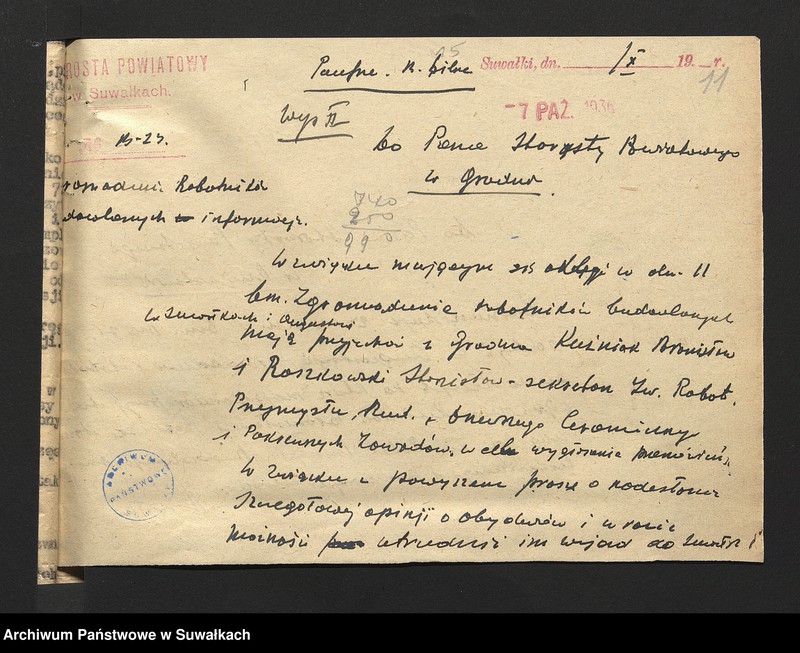 ROSTA POWIATOWY
w Suwałkach.
Poufne. K. Pilne
Suwałki, dn. 1/X 19 r.
11
7 PAŹ. 1936
B-23.
Do Pana Starosty Powiatowego
w Grodnie
Robotników
informacje.
740
250
990
W związku z mającym się odbyć w dn. 11
bm. Zgromadzenie robotników budowlanych
w Suwałkach i Augustowie
mają przyjechać z Grodna Kuźniak Bronisław
i Roszkowski Stanisław - sekretarz Zw. Robot.
Przemysłu Bud. Drzewnego Ceramiczny
i Pokrewnych Zawodów, w celu wygłoszenia przemówień.
W związku z powyższem proszę o nadesłanie
szczegółowej opinji o obydwów i w razie
możności utrudnić im wyjazd do Suwałk
ARCHIWUM
PAŃSTWOWE
Archiwum Państwowe w Suwałkach